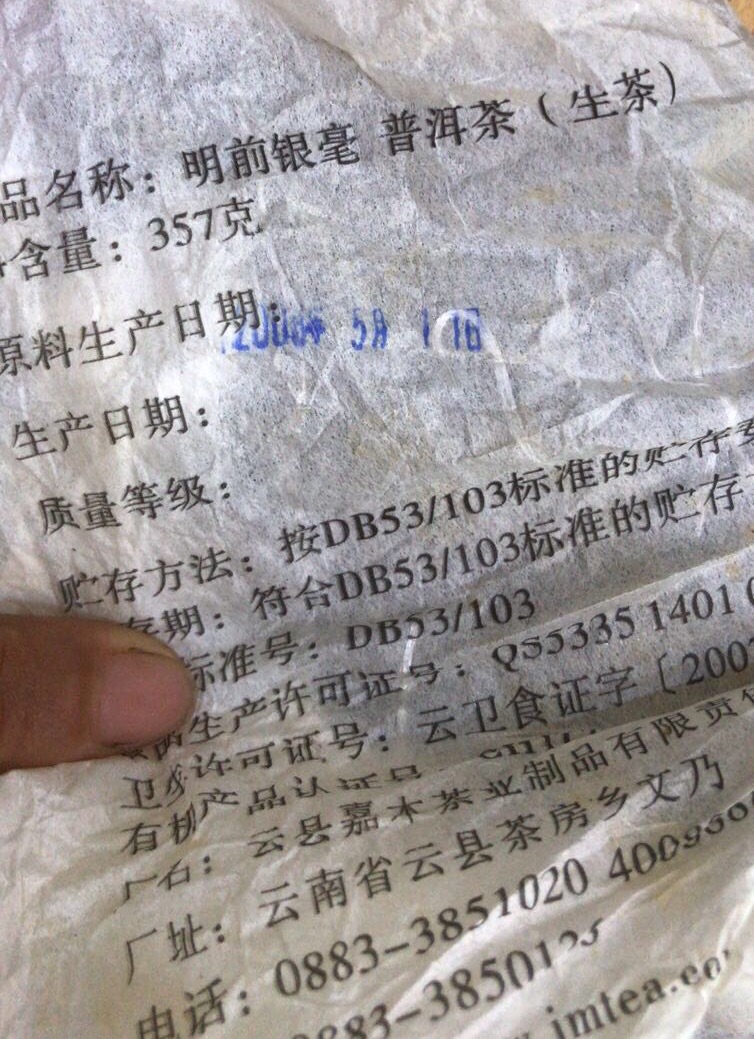 品名称：明前银毫 普洱茶（生茶）
含量：357克
原料生产日期：
生产日期：
质量等级：
贮存方法：按DB53/103标准的贮存
存期：符合DB53/103标准的贮存
标准号：DB53/103
生产许可证号：QS5335 1401
卫生许可证号：云卫食证字〔200
有机产品认证号
厂名：云县嘉木茶业制品有限责
厂址：云南省云县茶房乡文乃
电话：0883-3851020 400
0883-3850125
jmtea.co